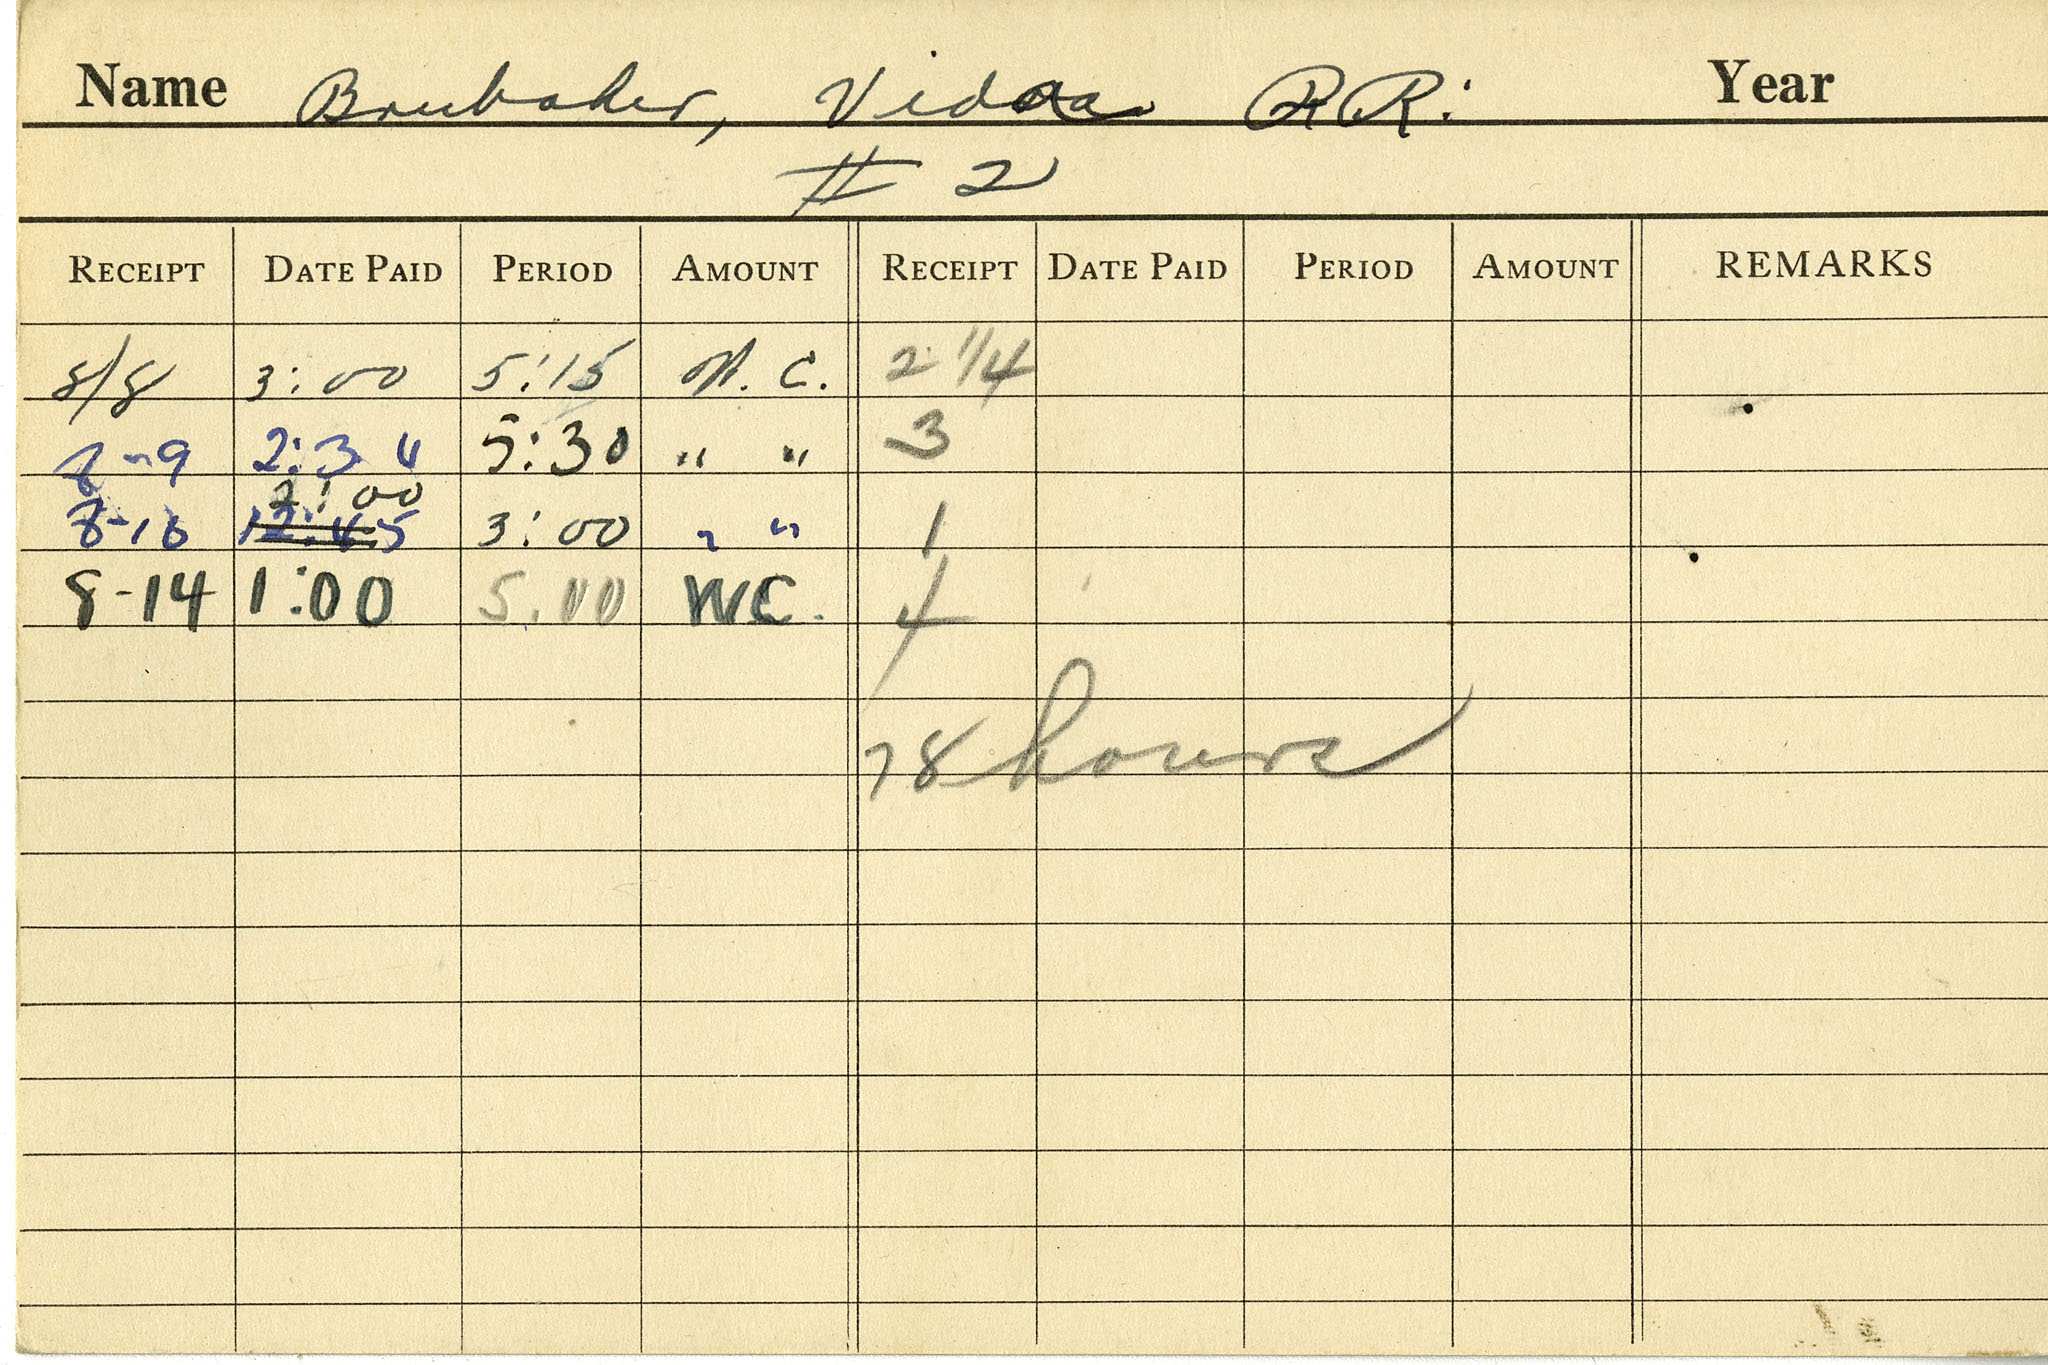 Name Brubaker, Vidra RR. Year
# 2
RECEIPT DATE PAID PERIOD AMOUNT RECEIPT DATE PAID PERIOD AMOUNT REMARKS
8/8 3:00 5:15 W. C. 2 1/4
8-9 2:30 5:30 " " 3
2:00
8-10 12:45 3:00 " " 1
8-14 1:00 5.00 WC. 4
78 hours